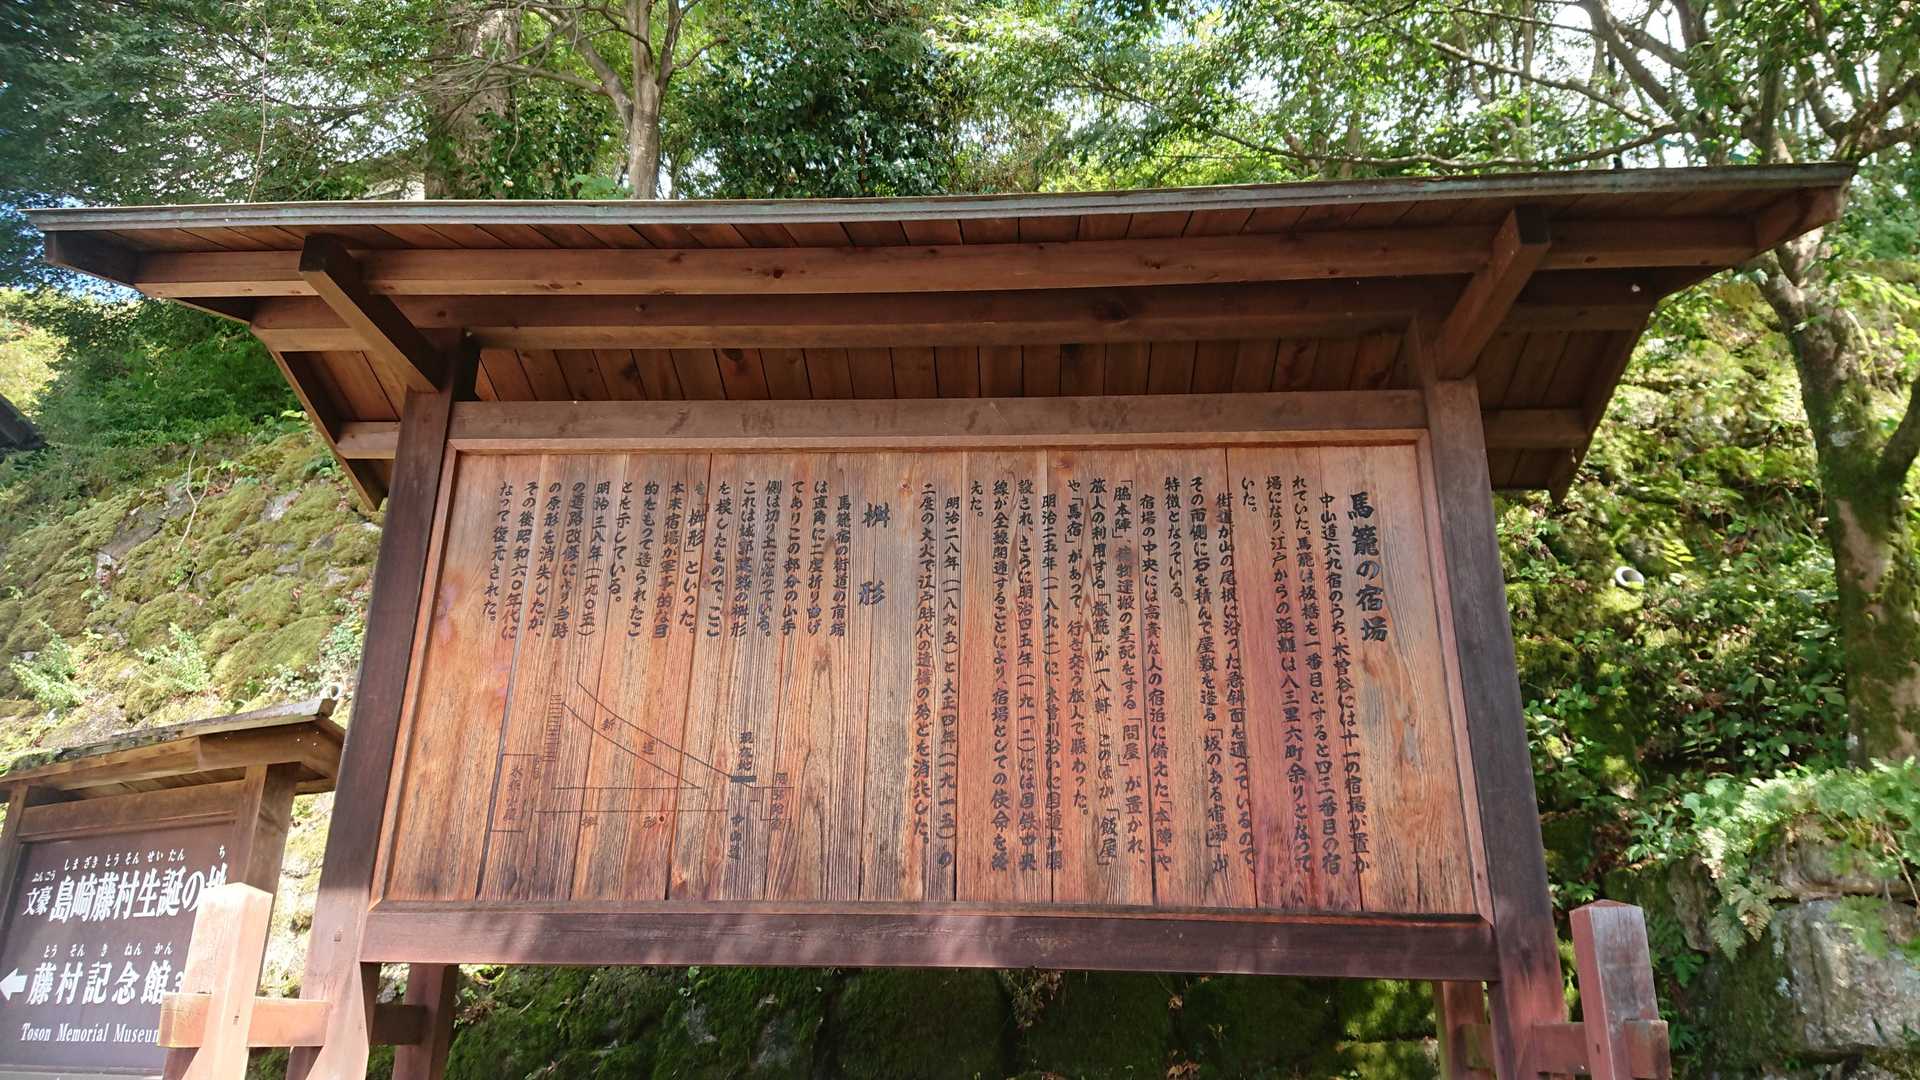 馬籠の宿場
中山道六九宿のうち、木曽谷には十一の宿場が置か
れていた。馬籠は板橋を一番目とすると四三番目の宿
場になり、江戸からの距離は八三里六町余りとなって
いた。
街道が山の尾根に沿った急斜面を通っているので、
その両側に石を積んで屋敷を造る「坂のある宿場」が
特徴となっている。
宿場の中央には高貴な人の宿泊に備えた「本陣」や
「脇本陣」、荷物運搬の差配をする「問屋」が置かれ、
旅人の利用する「旅籠」が一八軒、このほか「飯屋」
や「馬宿」があって、行き交う旅人で賑わった。
明治二五年（一八九二）に、木曽川沿いに国道が開
設され、さらに明治四五年（一九一二）には国鉄中央
線が全線開通することにより、宿場としての使命を終
えた。
明治二八年（一八九五）と大正四年（一九一五）の
二度の大火で江戸時代の遺構の殆どを消失した。
桝形
馬籠宿の街道の南端
は直角に二度折り曲げ
てありこの部分の山手
側は切り土になっている。
これは城郭建築の桝形
を模したもので、ここ
を「桝形」といった。
本来宿場が軍事的な目
的をもって造られたこ
とを示している。
明治三八年（一九〇五）
の道路改修により当時
の原形を消失したが、
その後昭和六〇年代に
なって復元された。
新道
現在地
桝形
中山道
ぶんごう しまざきとうそんせいたん ち
文豪 島崎藤村生誕の地
とうそんきねんかん
藤村記念館
Toson Memorial Museum